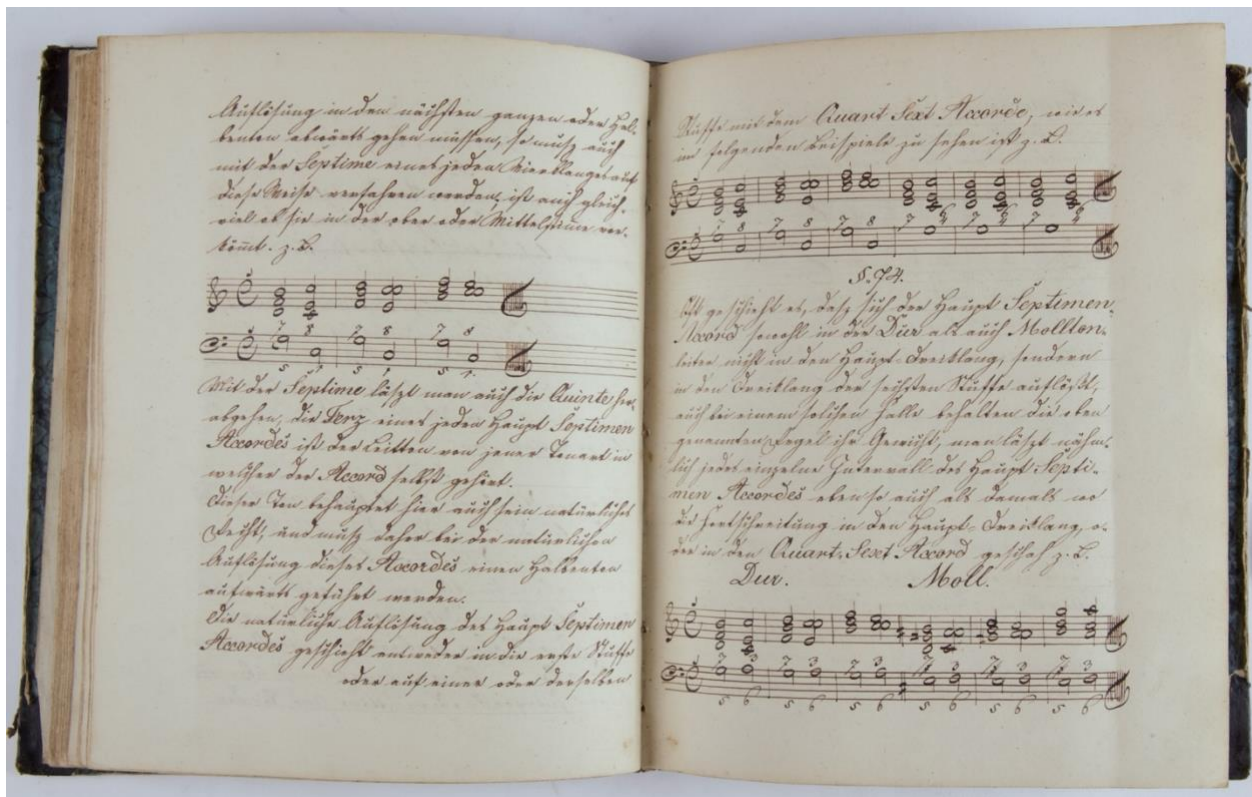 Auflösung in den nächsten ganzen oder Hal-
benton abwärts gehen müssen, so muß auch
mit der Septime eines jeden Vierklanges auf
diese Weise verfahren werden, ist auch gleich-
viel ob sie in der ober oder Mittelstime vor-
kömt. z. B.
7 8 7 8 7 8
5 1 5 1 5 1
Mit der Septime läszt man auch die Quinte her-
abgehen, die Terz eines jeden Haupt Septimen
Accordes ist der Leitton von jener Tonart in
welcher der Accord selbst gehört.
Dieser Ton behauptet hier auch sein natürliches
Recht, und muß daher bei der natürlichen
Auflösung dieses Accordes einen Halbenton
aufwärts geführt werden.
Die natürliche Auflösung des Haupt Septimen
Accordes geschieht entweder in die erste Stuffe
oder auf einer oder derselben
Stuffe mit dem Quart Sext Accorde, wie es
im folgenden Beispiele zu sehen ist z. B.
7 8 7 8 7 8 7 7 7
§. 74.
Oft geschieht es, dasz sich der Haupt Septimen
Accord sowohl in der Dur als auch Mollton-
leiter nicht in den Haupt-Dreiklang, sondern
in den Dreiklang der sechsten Stuffe auflößt;
auch bei einem solchen Falle behalten die oben
genannten Regel ihr Gewicht, man läszt nähm-
lich jedes einzelne Intervall des Haupt Septi-
men Accordes ebenso auch als damals wo
die Fortschreitung in den Haupt-Dreiklang, o-
der in den Quart-Sext-Accord geschah z. B.
Dur. Moll.
7 3 7 3 7 3 7 3 7 3 7 3
5 6 5 6 5 6 5 6 5 6 5 6